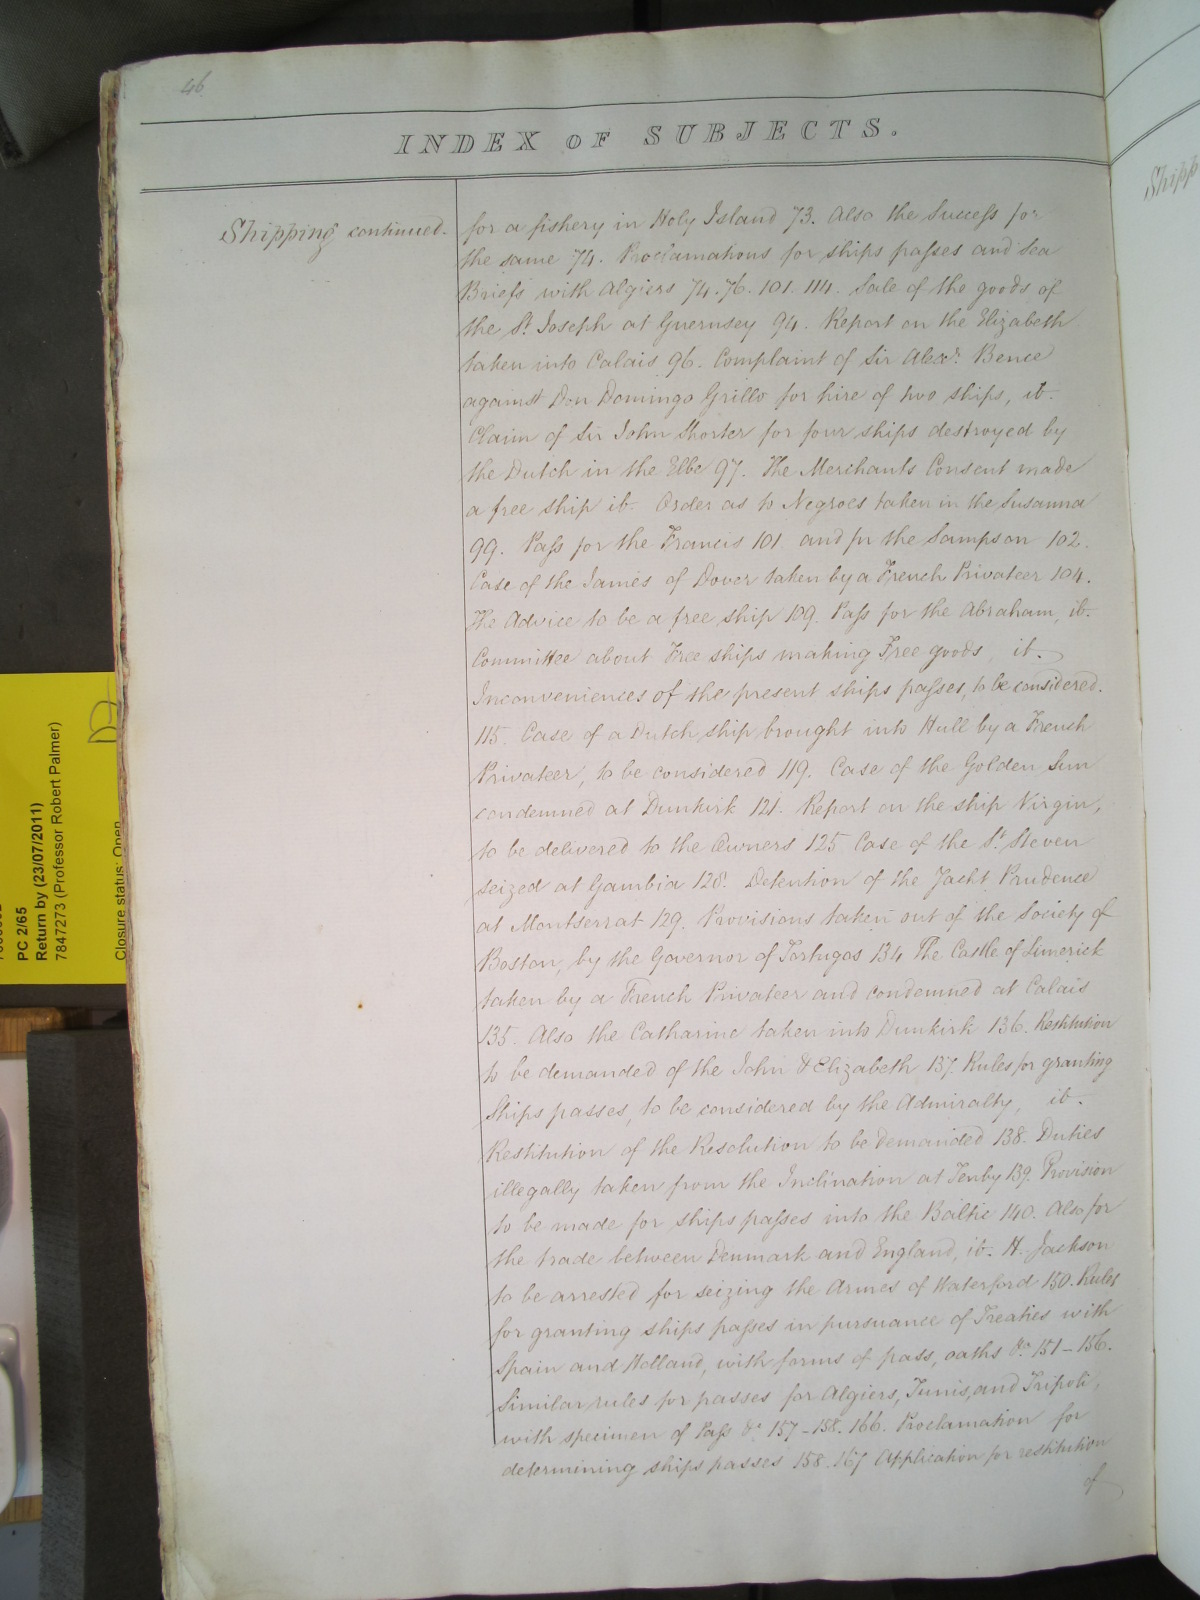 46
INDEX OF SUBJECTS.
Shipping continued.
for a fishery in Holy Island 73. Also the Success for
the same 74. Proclamations for ships passes and Sea
Briefs with Algiers 74. 76. 101. 114. Sale of the goods of
the St. Joseph at Guernsey 94. Report on the Elizabeth
taken into Calais 96. Complaint of Sir Alexr. Bence
against Don Domingo Grillo for hire of two ships, ib.
Claim of Sir John Shorter for four ships destroyed by
the Dutch in the Elbe 97. The Merchants Consent made
a free ship ib. Order as to Negroes taken in the Susanna
99. Pass for the Francis 101 and for the Sampson 102.
Case of the James of Dover taken by a French Privateer 104.
The Advice to be a free ship 109. Pass for the Abraham, ib.
Committee about Free ships making Free goods, ib.
Inconveniences of the present ships passes, to be considered.
115. Case of a Dutch ship brought into Hull by a French
Privateer, to be considered 119. Case of the Golden Sun
condemned at Dunkirk 121. Report on the ship Virgin,
to be delivered to the Owners 125. Case of the St. Steven
seized at Gambia 128. Detention of the Yacht Prudence
at Montserrat 129. Provisions taken out of the Society of
Boston, by the Governor of Tortugos 134 The Castle of Limerick
taken by a French Privateer and condemned at Calais
135. Also the Catharine taken into Dunkirk 136. Restitution
to be demanded of the John & Elizabeth 137. Rules for granting
Ships passes, to be considered by the Admiralty, ib.
Restitution of the Resolution to be demanded 138. Duties
illegally taken from the Inclination at Tenby 139. Provision
to be made for ships passes into the Baltic 140. Also for
the trade between Denmark and England, ib. H. Jackson
to be arrested for seizing the Armes of Waterford 150. Rules
for granting ships passes in pursuance of Treaties with
Spain and Holland, with forms of pass, oaths &c. 151-156.
Similar rules for passes for Algiers, Tunis, and Tripoli,
with specimen of Pass &c. 157-158. 166. Proclamation for
determining ships passes 158. 167 Application for restitution
of
Shipp
PC 2/65
Return by (23/07/2011)
7847273 (Professor Robert Palmer)
Closure status: Open